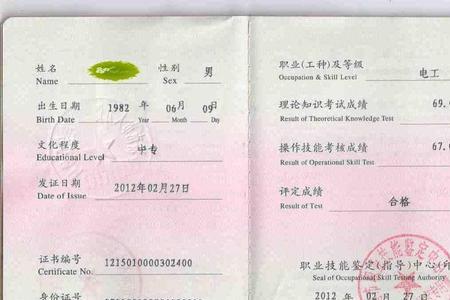 姓名 性别 男
Name Sex
出生日期 1982 年 06 月 09 日
Birth Date Year Month Day
文化程度 中专
Educational Level
发证日期 2012年02月27日
Date of Issue
证书编号 1215010000302400
Certificate No.
身份证号
职业(工种)及等级 电工
Occupation & Skill Level
理论知识考试成绩 69.
Result of Theoretical Knowledge Test
操作技能考核成绩 67.
Result of Operational Skill Test
评定成绩 合格
Result of Test
职业技能鉴定(指导)中心(印
Seal of Occupational Skill Testing Authority
2012 年 02 月 27 日